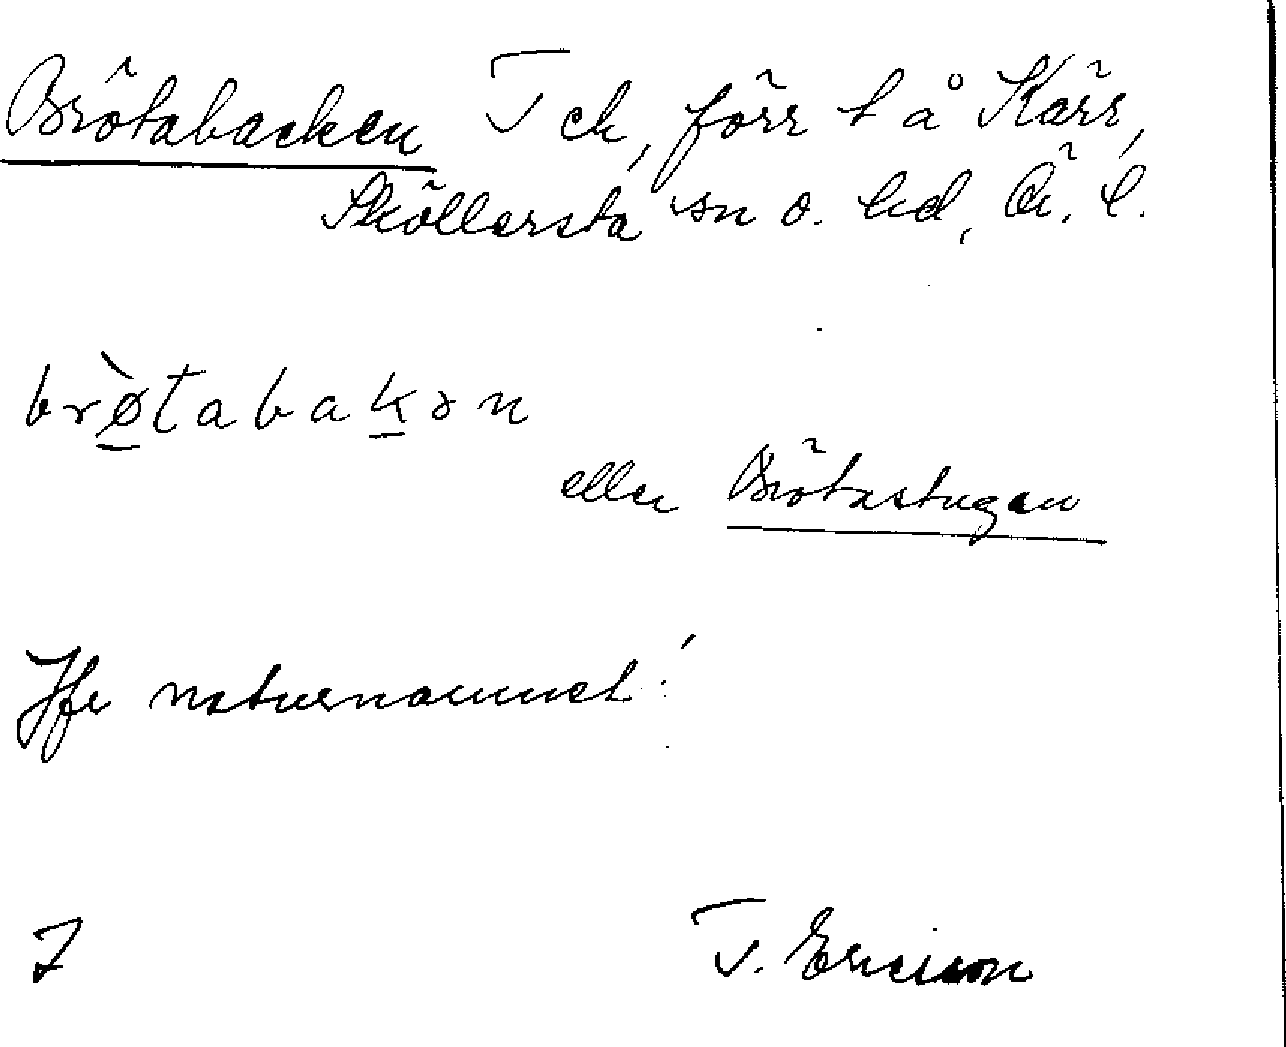 Brötabacken Tch, förr t å Kärr,
Sköllersta sn o. hd, Ö. l.
brø̀tabakən
eller Brötastugan
Jfr naturnamnet!
T. Ericsson